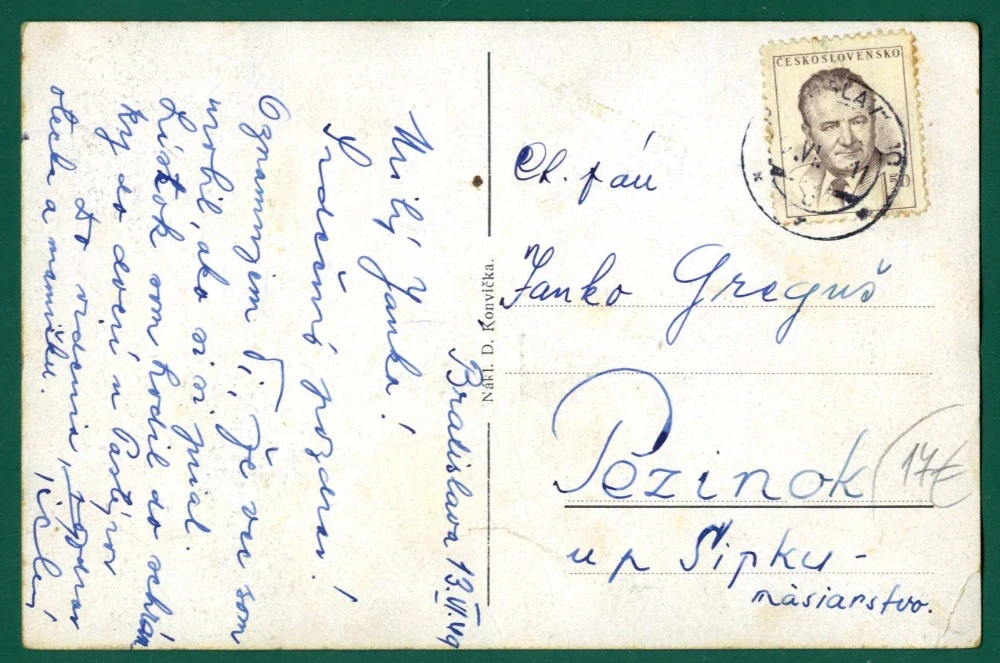 Bratislava 13.VI.49
Milý Janko!
Srdečný pozdrav!
Oznamujem Ti, že vec som
urobil, ako si mi
Lístok som hodil do schrán
ky do dverí u
Do videnia,
otecka a mamičku.
Nákl. D. Konvička.
ČESKOSLOVENSKO
Ct. pán
Janko Greguš
Pezinok
17€
u p Šipku -
mäsiarstvo.